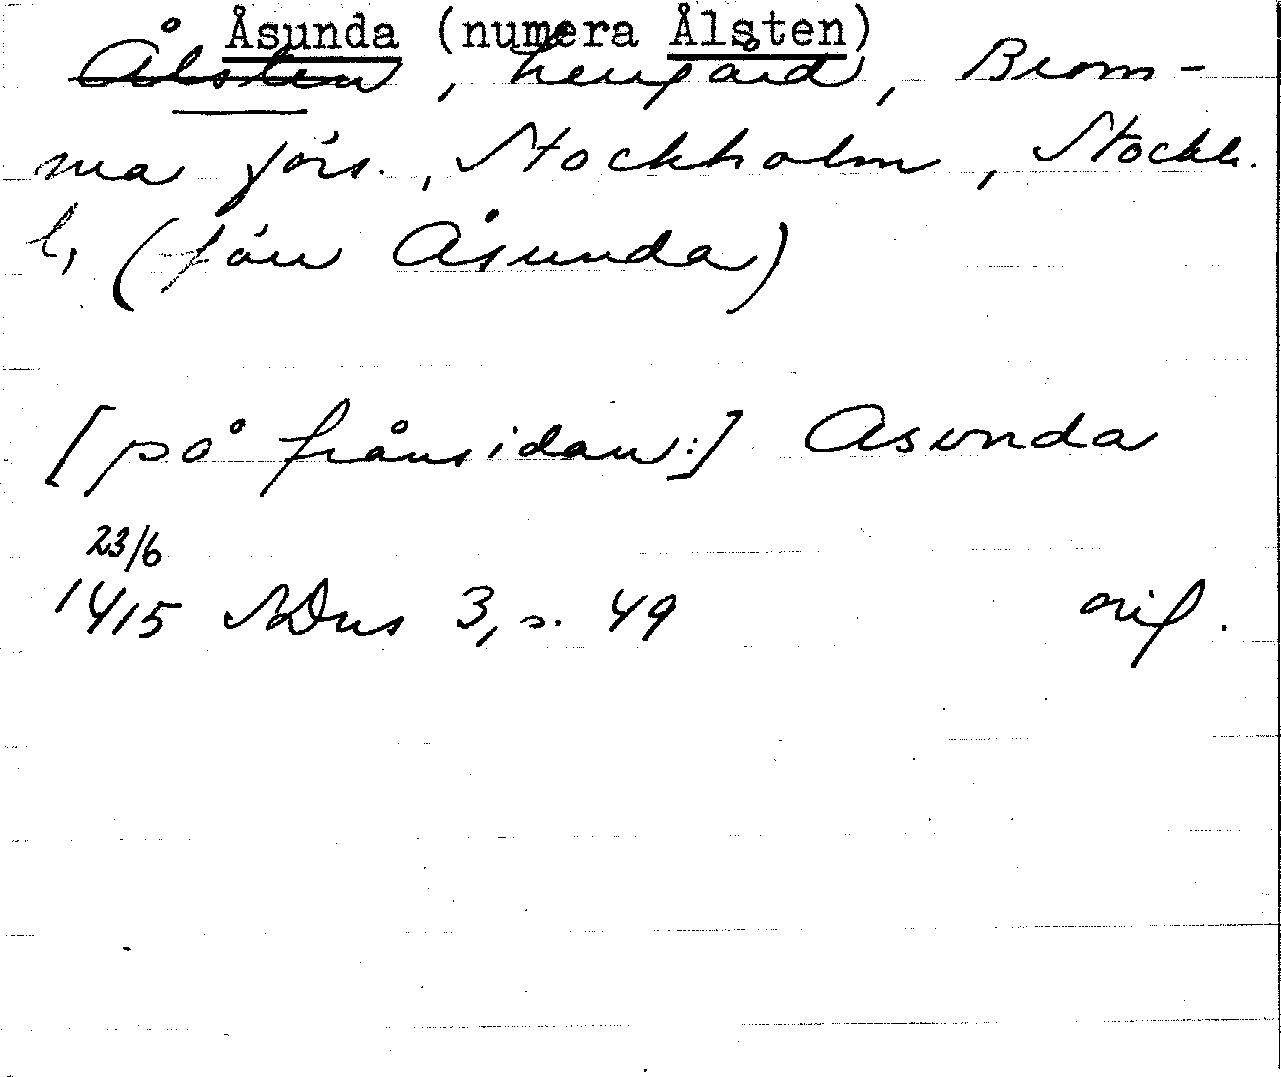 Åsunda (numera Ålsten)
Ålsten, herrgård, Brom-
ma förs., Stockholm, Stockh.
l, (förr Åsunda)
[på frånsidan:] Asunda
23/6
1415 SDns 3, s. 49 orig.